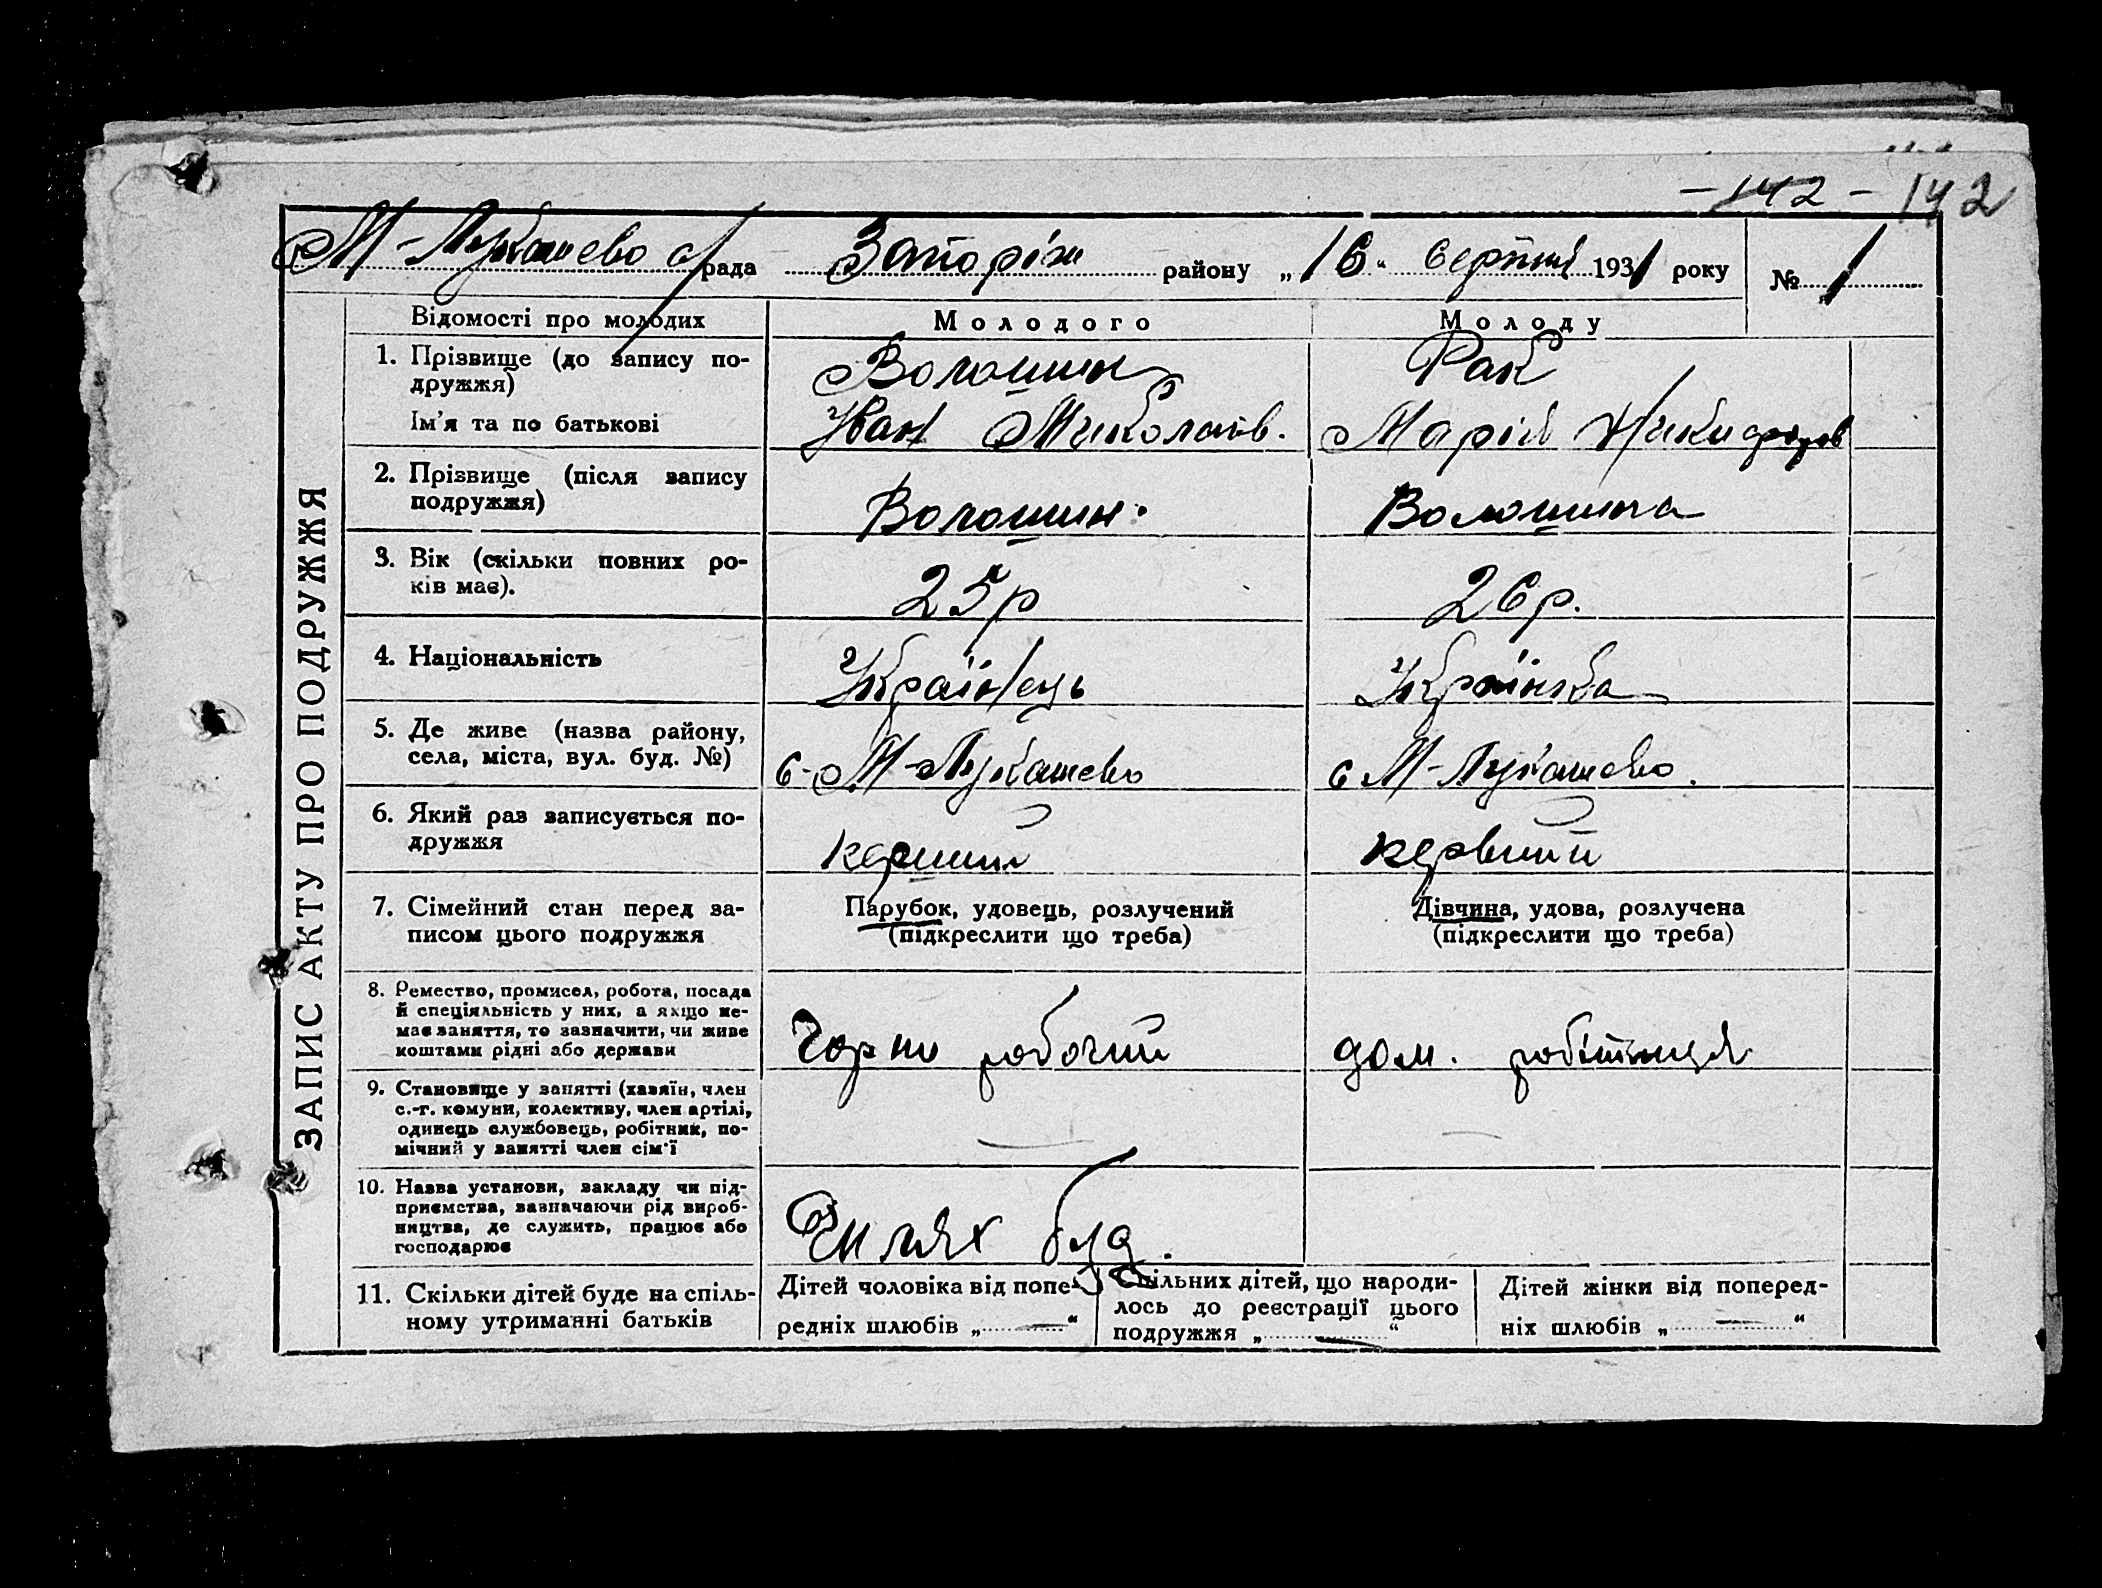 - 142 - 142
М-Лукашево с/рада Запоріж району „16“ серпня 1931 року № 1
ЗАПИС АКТУ ПРО ПОДРУЖЖЯ
Відомості про молодих Молодого Молоду
1. Прізвище (до запису по-
дружжя)
Волошин Рак
Ім’я та по батькові Іван Миколаїв. Марія Никифоров
2. Прізвище (після запису
подружжя)
Волошин. Волошина
3. Вік (скільки повних ро-
ків має).
25 р 26 р.
4. Національність Українець Українка
5. Де живе (назва району,
села, міста, вул. буд. №)
с-М-Лукашево с М-Лукашево.
6. Який раз записується по-
дружжя
перший первший
7. Сімейний стан перед за-
писом цього подружжя
Парубок, удовець, розлучений
(підкреслити що треба)
Дівчина, удова, розлучена
(підкреслити що треба)
8. Ремество, промисел, робота, посада
й спеціяльність у них, а якщо не-
має заняття, то зазначити, чи живе
коштами рідні або держави
Чорно робочий дом. робітниця
9. Становище у занятті (хазяїн, член
с.-г. комуни, колективу, член артілі,
одинець службовець, робітник, по-
мічний у занятті член сім’ї
10. Назва установи, закладу чи під-
приємства, зазначаючи рід вироб-
ництва, де служить, працює або
господарює
Шлях буд.
11. Скільки дітей буде на спіль-
ному утриманні батьків
Дітей чоловіка від попе-
редніх шлюбів „ — “
Спільних дітей, що народи-
лось до реєстрації цього
подружжя „ — “
Дітей жінки від поперед-
ніх шлюбів „ — “